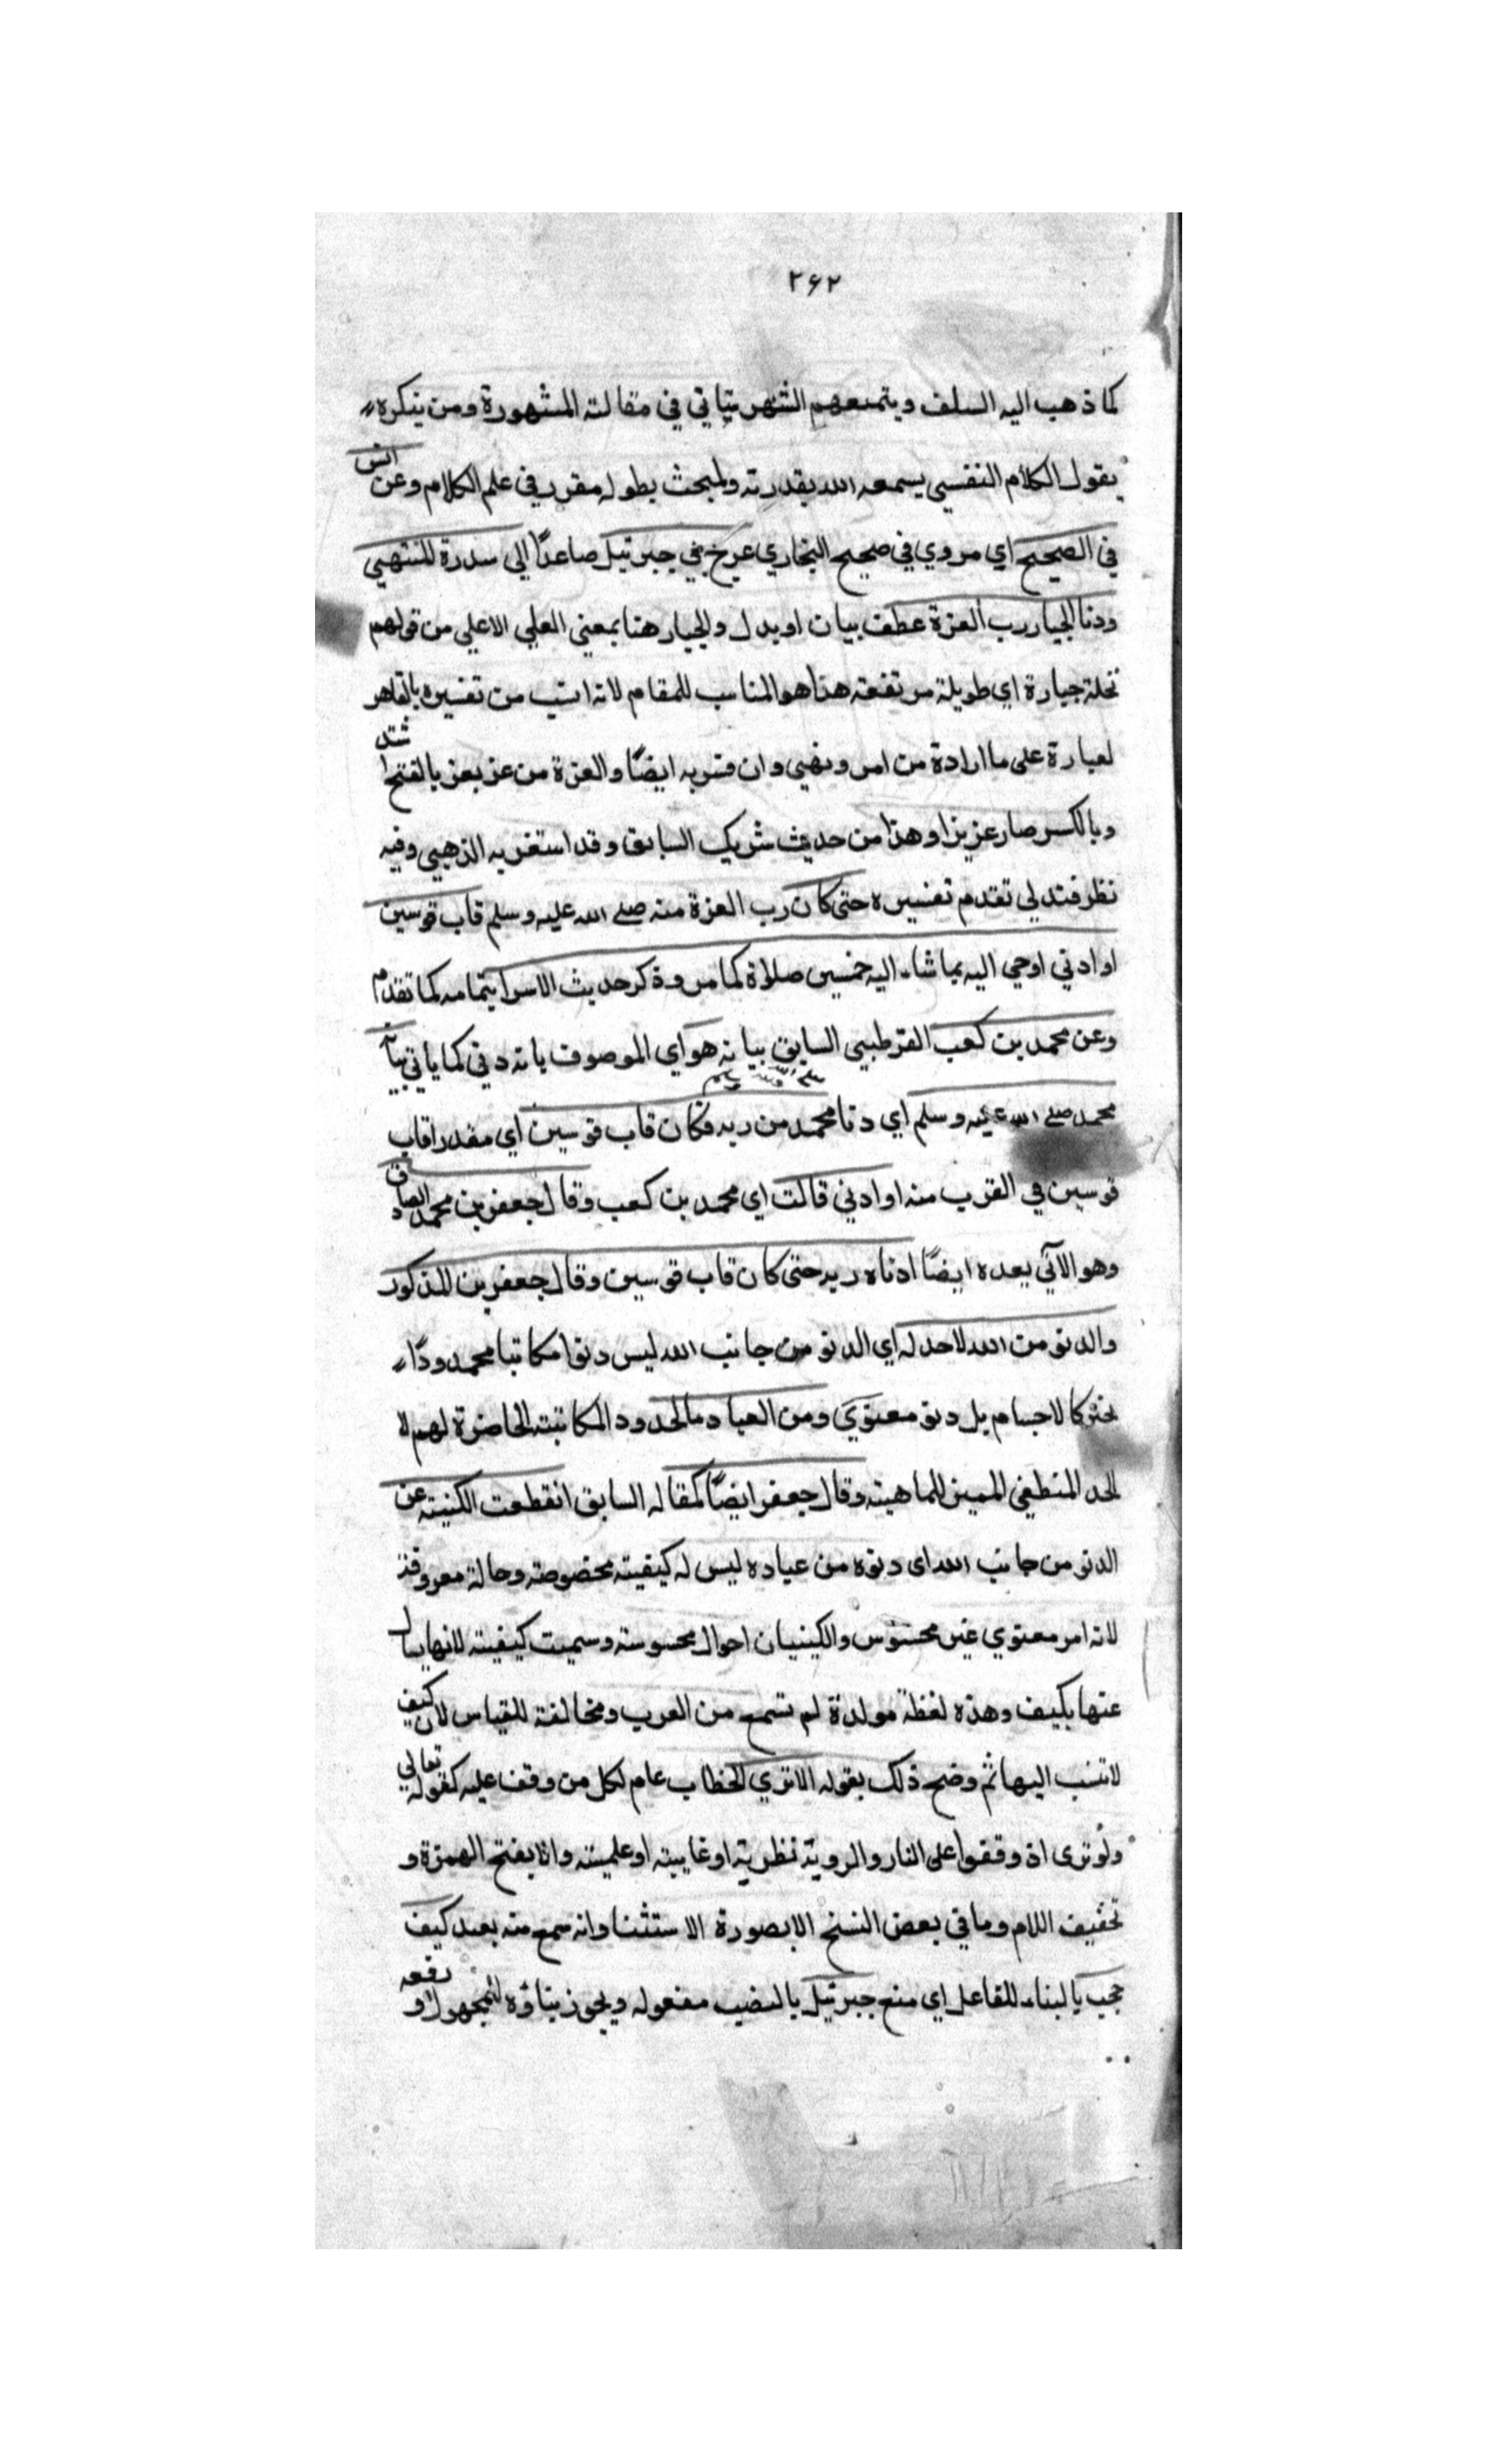 ٢٦٢
كما ذهب اليه السلف وبتمنعهم الشهرستاني في مقالته المشهورة ومن ينكره
يقول الكلام النفسي يسمعه الله بقدرته والمبحث بطوله مقرر في علم الكلام وعن انس
في الصحيح اي مروي في صحيح البخاري عرج بي جبرئيل صاعدًا الي سدرة المنتهي
ودنا الجبار رب العزة عطف بيان او بدل والجبار هنا بمعني العلي الاعلي من قولهم
نخلة جبارة اي طويلة مرتفعة هذا هو المناسب للمقام لانه انسب من تفسيره بالقاهر
لعبارة على ما ارادة من امر ونهي وان فسر به ايضًا والعزة من عز يعز بالفتح اشتد
وبالكسر صار عزيزا وهذا من حديث شريك السابق وقد استغربه الذهبي وفيه
نظر فتدلي تقدم تفسيره حتى كان رب العزة منه صلے الله عليه وسلم قاب قوسين
او ادني اوحي اليه بما شاء اليه خمسين صلاة كما مر وذكر حديث الاسرا بتمامه كما تقدم
وعن محمد بن كعب القرطبي السابق بيانه هو اي الموصوف بانه دني كما ياتي بيا
محمد صلے الله عليه وسلم اي دنا محمد من ربه فكان قاب قوسين اي مقدار قاب
قوسين في القرب منه او ادني قالت اي محمد بن كعب وقال جعفر بن محمد الصادق
وهو الآتي بعده ايضًا ادناه ربه حتى كان قاب قوسين وقال جعفر بن المذكور
والدنو من الله لا حد له اي الدنو من جانب الله ليس دنوا مكانيا محمدودًا
كالاجسام بل دنو معنوي ومن العباد مالحدود المكانية الحاضرة لهم لا
الحد المنطقي المميز للماهية وقال جعفر ايضًا كمقاله السابق انقطعت الكنية عن
الدنو من جانب الله اى دنوه من عباده ليس له كيفية مخصوصة وحالة معروفة
لانه امر معنوي غير محسوس والكينيان احوال محسوسة وسميت كيفية لانها يسال
عنها بكيف وهذه لفظة مولدة لم تسمع من العرب ومخالفة للقياس لان كيف
لا تنسب اليها ثم وضح ذلك بقوله الا تري الخطاب عام لكل من وقف عليه كقوله تعالي
ولو ترى اذ وقفوا على النار والروية نظرية او غايبية او علمية وانا بفتح الهمزة و
تخفيف اللام وما في بعض النسخ الا بصورة الاستثنا وانه سمع منه بعيد كيف
حجب بالبناء للفاعل اي منع جبرئيل بالنصب مفعوله ويجوز بناؤه للمجهول و رفعه